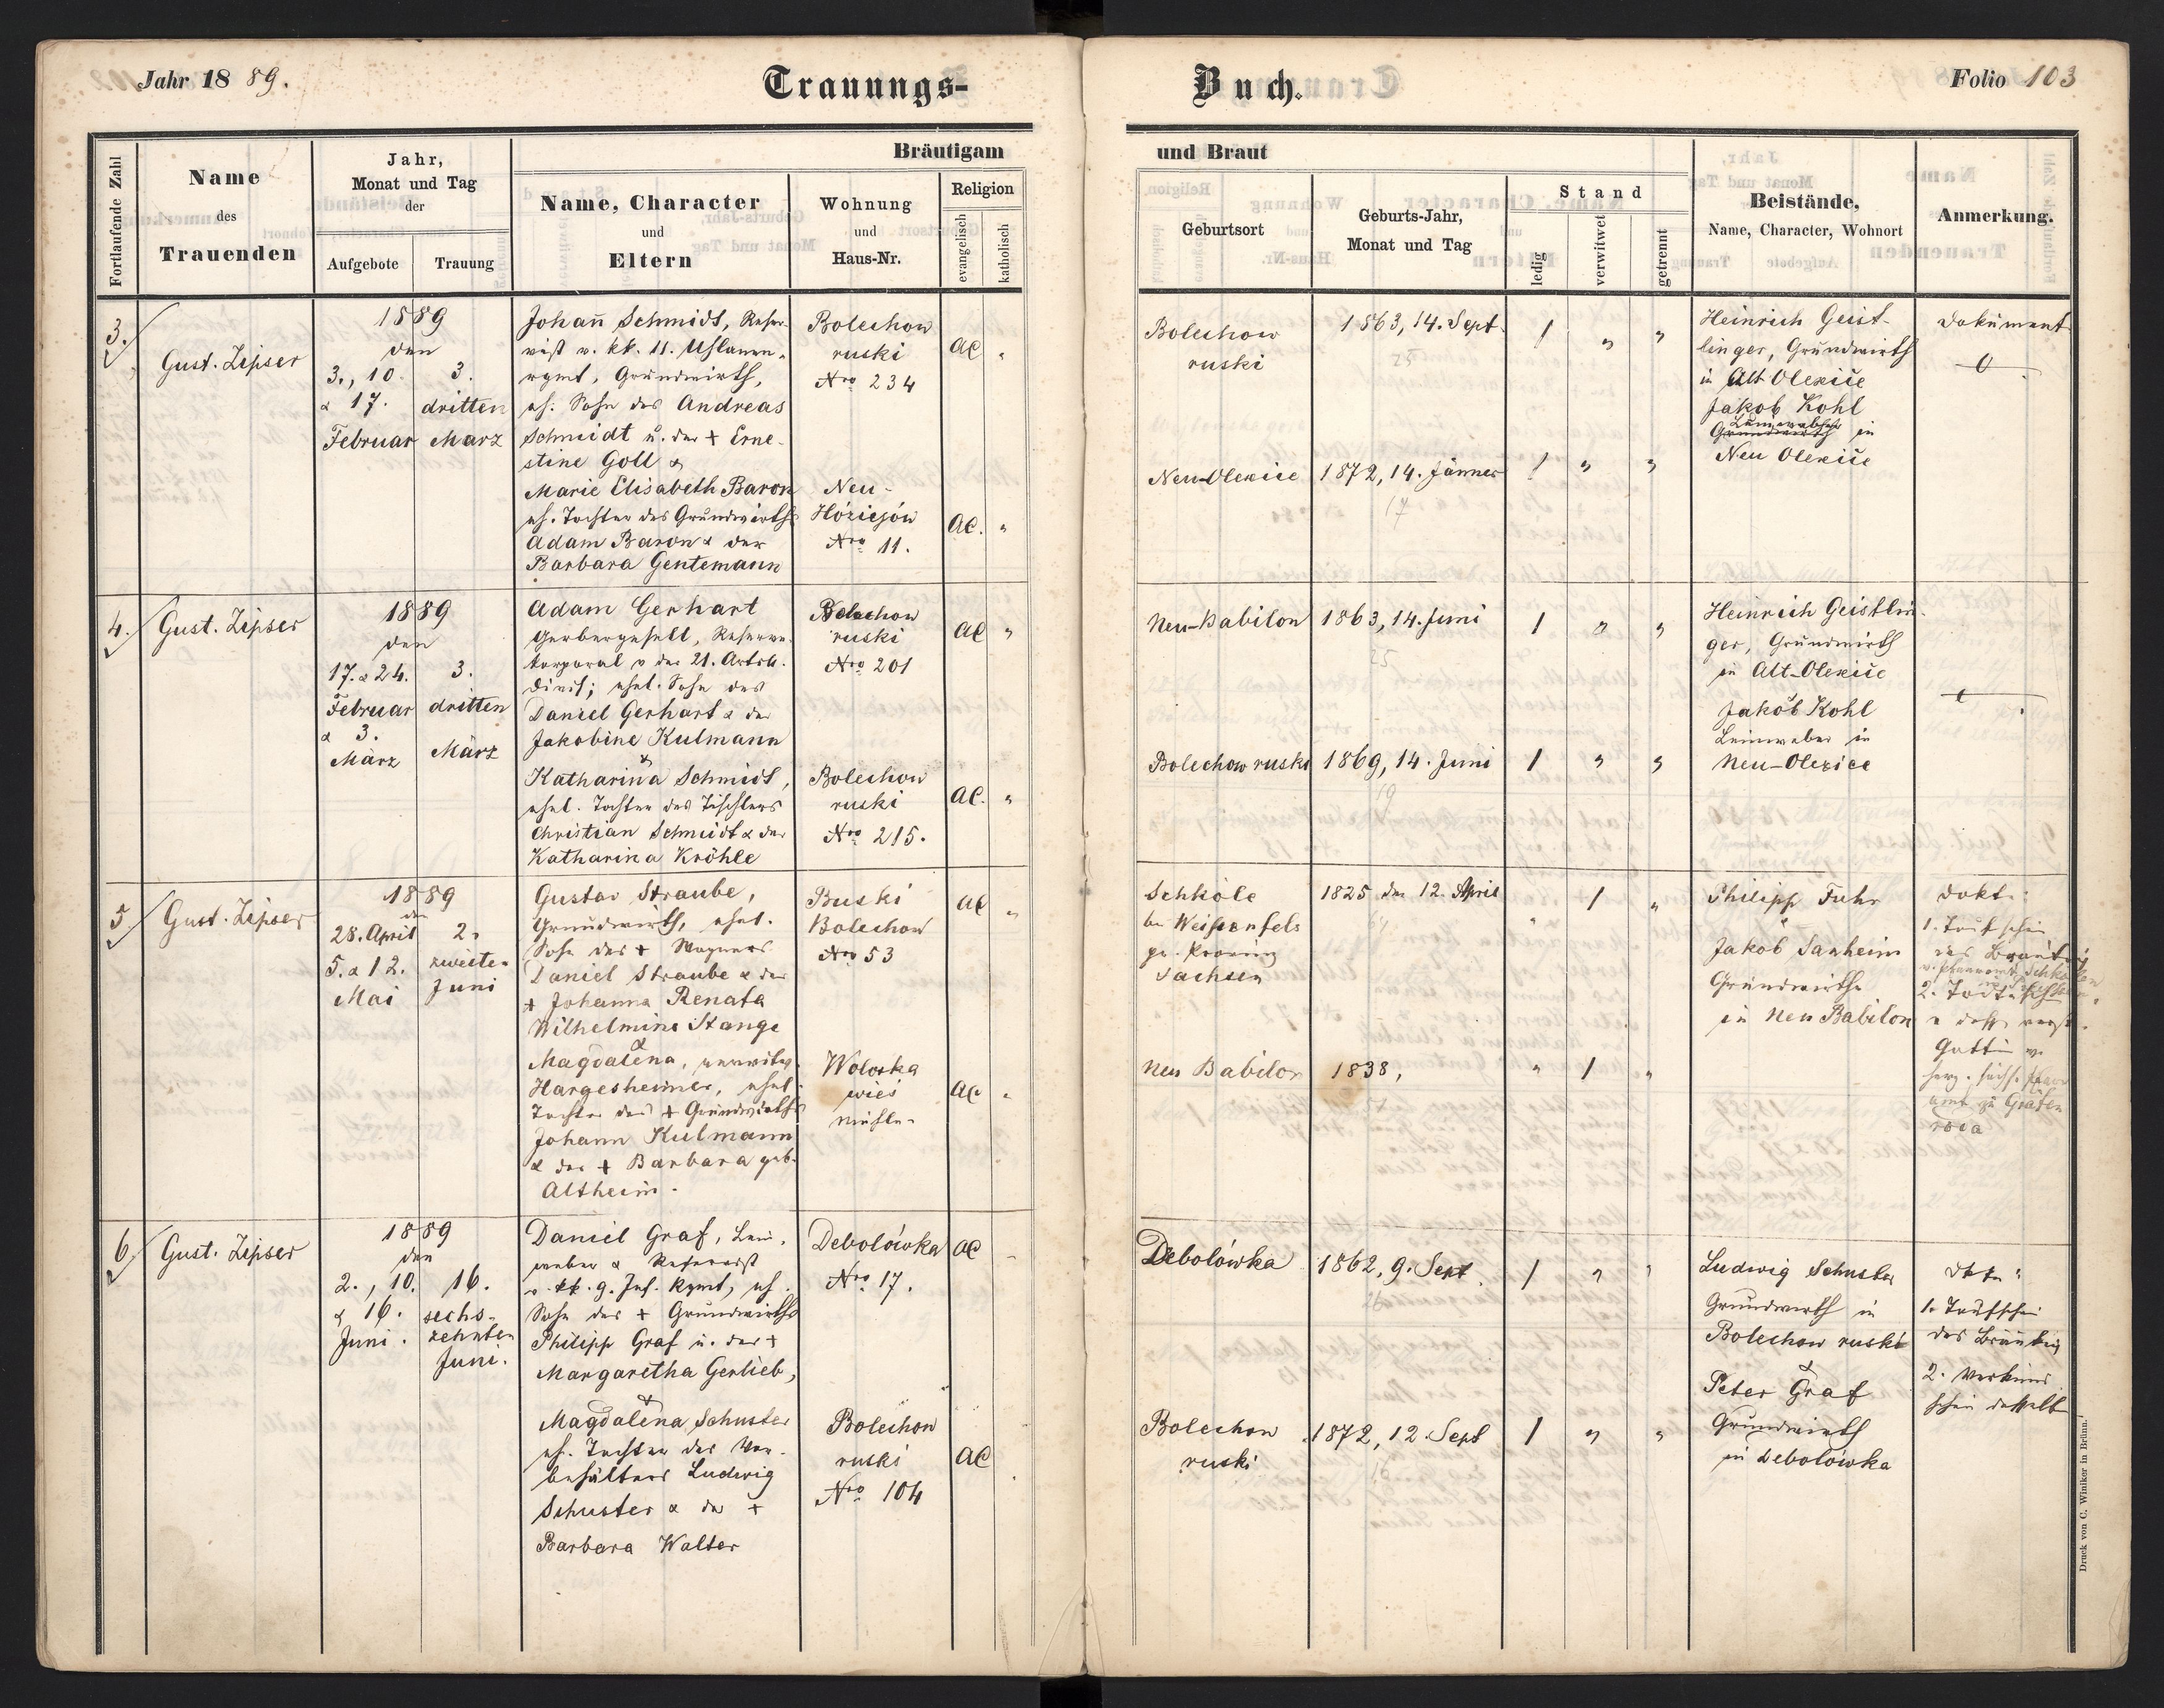 Jahr 1889.
Trauungs-
Buch.
Folio 103
Fortlaufende Zahl
Name
des
Trauenden
Jahr,
Monat und Tag
der
Aufgebote
Trauung
Bräutigam
Name, Character
und
Eltern
Wohnung
und
Haus-Nr.
Religion
evangelisch
katholisch
und Braut
Geburtsort
Geburts-Jahr,
Monat und Tag
Stand
ledig
verwitwet
getrennt
Beistände,
Name, Character, Wohnort
Anmerkung.
3.
Gust. Zipser
1889
den
3., 10.
& 17.
Februar
3.
dritten
März
Johann̄ Schmidt, Reser-
vist v. kk. 11. Uhlanen-
rgmt, Grundwirth,
eh. Sohn des Andreas
Schmidt u. der + Erne-
stine Goll &
Marie Elisabeth Baron
eh. Tochter des Grundwirths
Adam Baron & der
Barbara Gentemann
Bolechow
ruski
Nro 234
AC "
Neu-
Hóziejów
Nro 11.
AC. "
Bolechow
ruski
1863, 14. Sept.
25
1 " "
Neu-Olexice
1872, 14. Jänner
17
1 " "
Heinrich Geist-
linger, Grundwirth
in Alt Olexice
Jakob Kohl
Leinweber
Grundwirth in
Neu Olexice
Dokument
0
4.
Gust. Zipser
1889
den
17. & 24.
Februar
& 3.
März
3.
dritten
März
Adam Gerhart
Gerbergesell, Reserve-
korporal v der 21. Artill.
Divis; ehel. Sohn des
Daniel Gerhart & der
Jakobine Kulmann
&
Katharina Schmidt,
ehel. Tochter des Tischlers
Christian Schmidt & der
Katharina Kröhle
Bolechow
ruski
Nro 201
AC "
Bolechow
ruski
Nro 215.
AC. "
Neu-Babilon
1863, 14. Juni
25
1 " "
Bolechow ruski
1869, 14. Juni
19
1 " "
Heinrich Geistlin-
ger, Grundwirth
in Alt-Olexice
Jakob Kohl
Leinweber in
Neu-Olexice
5.
Gust. Zipser
1889
den
28. April
5. & 12.
Mai
2.
zweiten
Juni
Gustav Straube,
Grundwirth, ehel.
Sohn des + Wagners
Daniel Straube & der
+ Johanna Renata
Wilhelmine Stange
&
Magdalena, verwitw.
Hargesheimer, ehel.
Tochter des + Grundwirths
Johann Kulmann
& der + Barbara geb.
Altheim.
Ruski
Bolechow
Nro 53
AC "
Woloska
wieś
AC "
Schköle
bei Weißenfels
pr. Provinz
Sachsen
1825 den 12. April
64
" 1 "
Neu Babilon
1838,
51
" 1 "
Philipp Fuhr
Jakob Sanheim
Grundwirthe
in Neu Babilon
Dokt.:
1. Taufschein
des Bräutig
2.
Gattin v.
amt zu Gräfen
roda
6.
Gust. Zipser
1889
den
2., 10.
& 16.
Juni.
16.
sechs-
zehnten
Juni.
Daniel Graf, Lein-
weber & Reservist
v. kk. 9. Inf. Rgmt, eh.
Sohn des + Grundwirths
Philipp Graf u. der +
Margaretha Gerlieb,
&
Magdalena Schuster
eh. Tochter des Vor-
behälters Ludwig
Schuster & der +
Barbara Walter
Debolówka
Nro 17.
AC
Bolechow
ruski
Nro 104
AC
Debolówka
1862, 9. Sept.
26
1 " "
Bolechow
ruski
1872, 12 Sept
16
1 " "
Ludwig Schuster
Grundwirth in
Bolechow ruski
&
Peter Graf
Grundwirth
in Debolówka
Dkte:
1. Taufschein
des Bräutig
2. Verkünd
schein desselb
Druck von C. Winiker in Brünn.